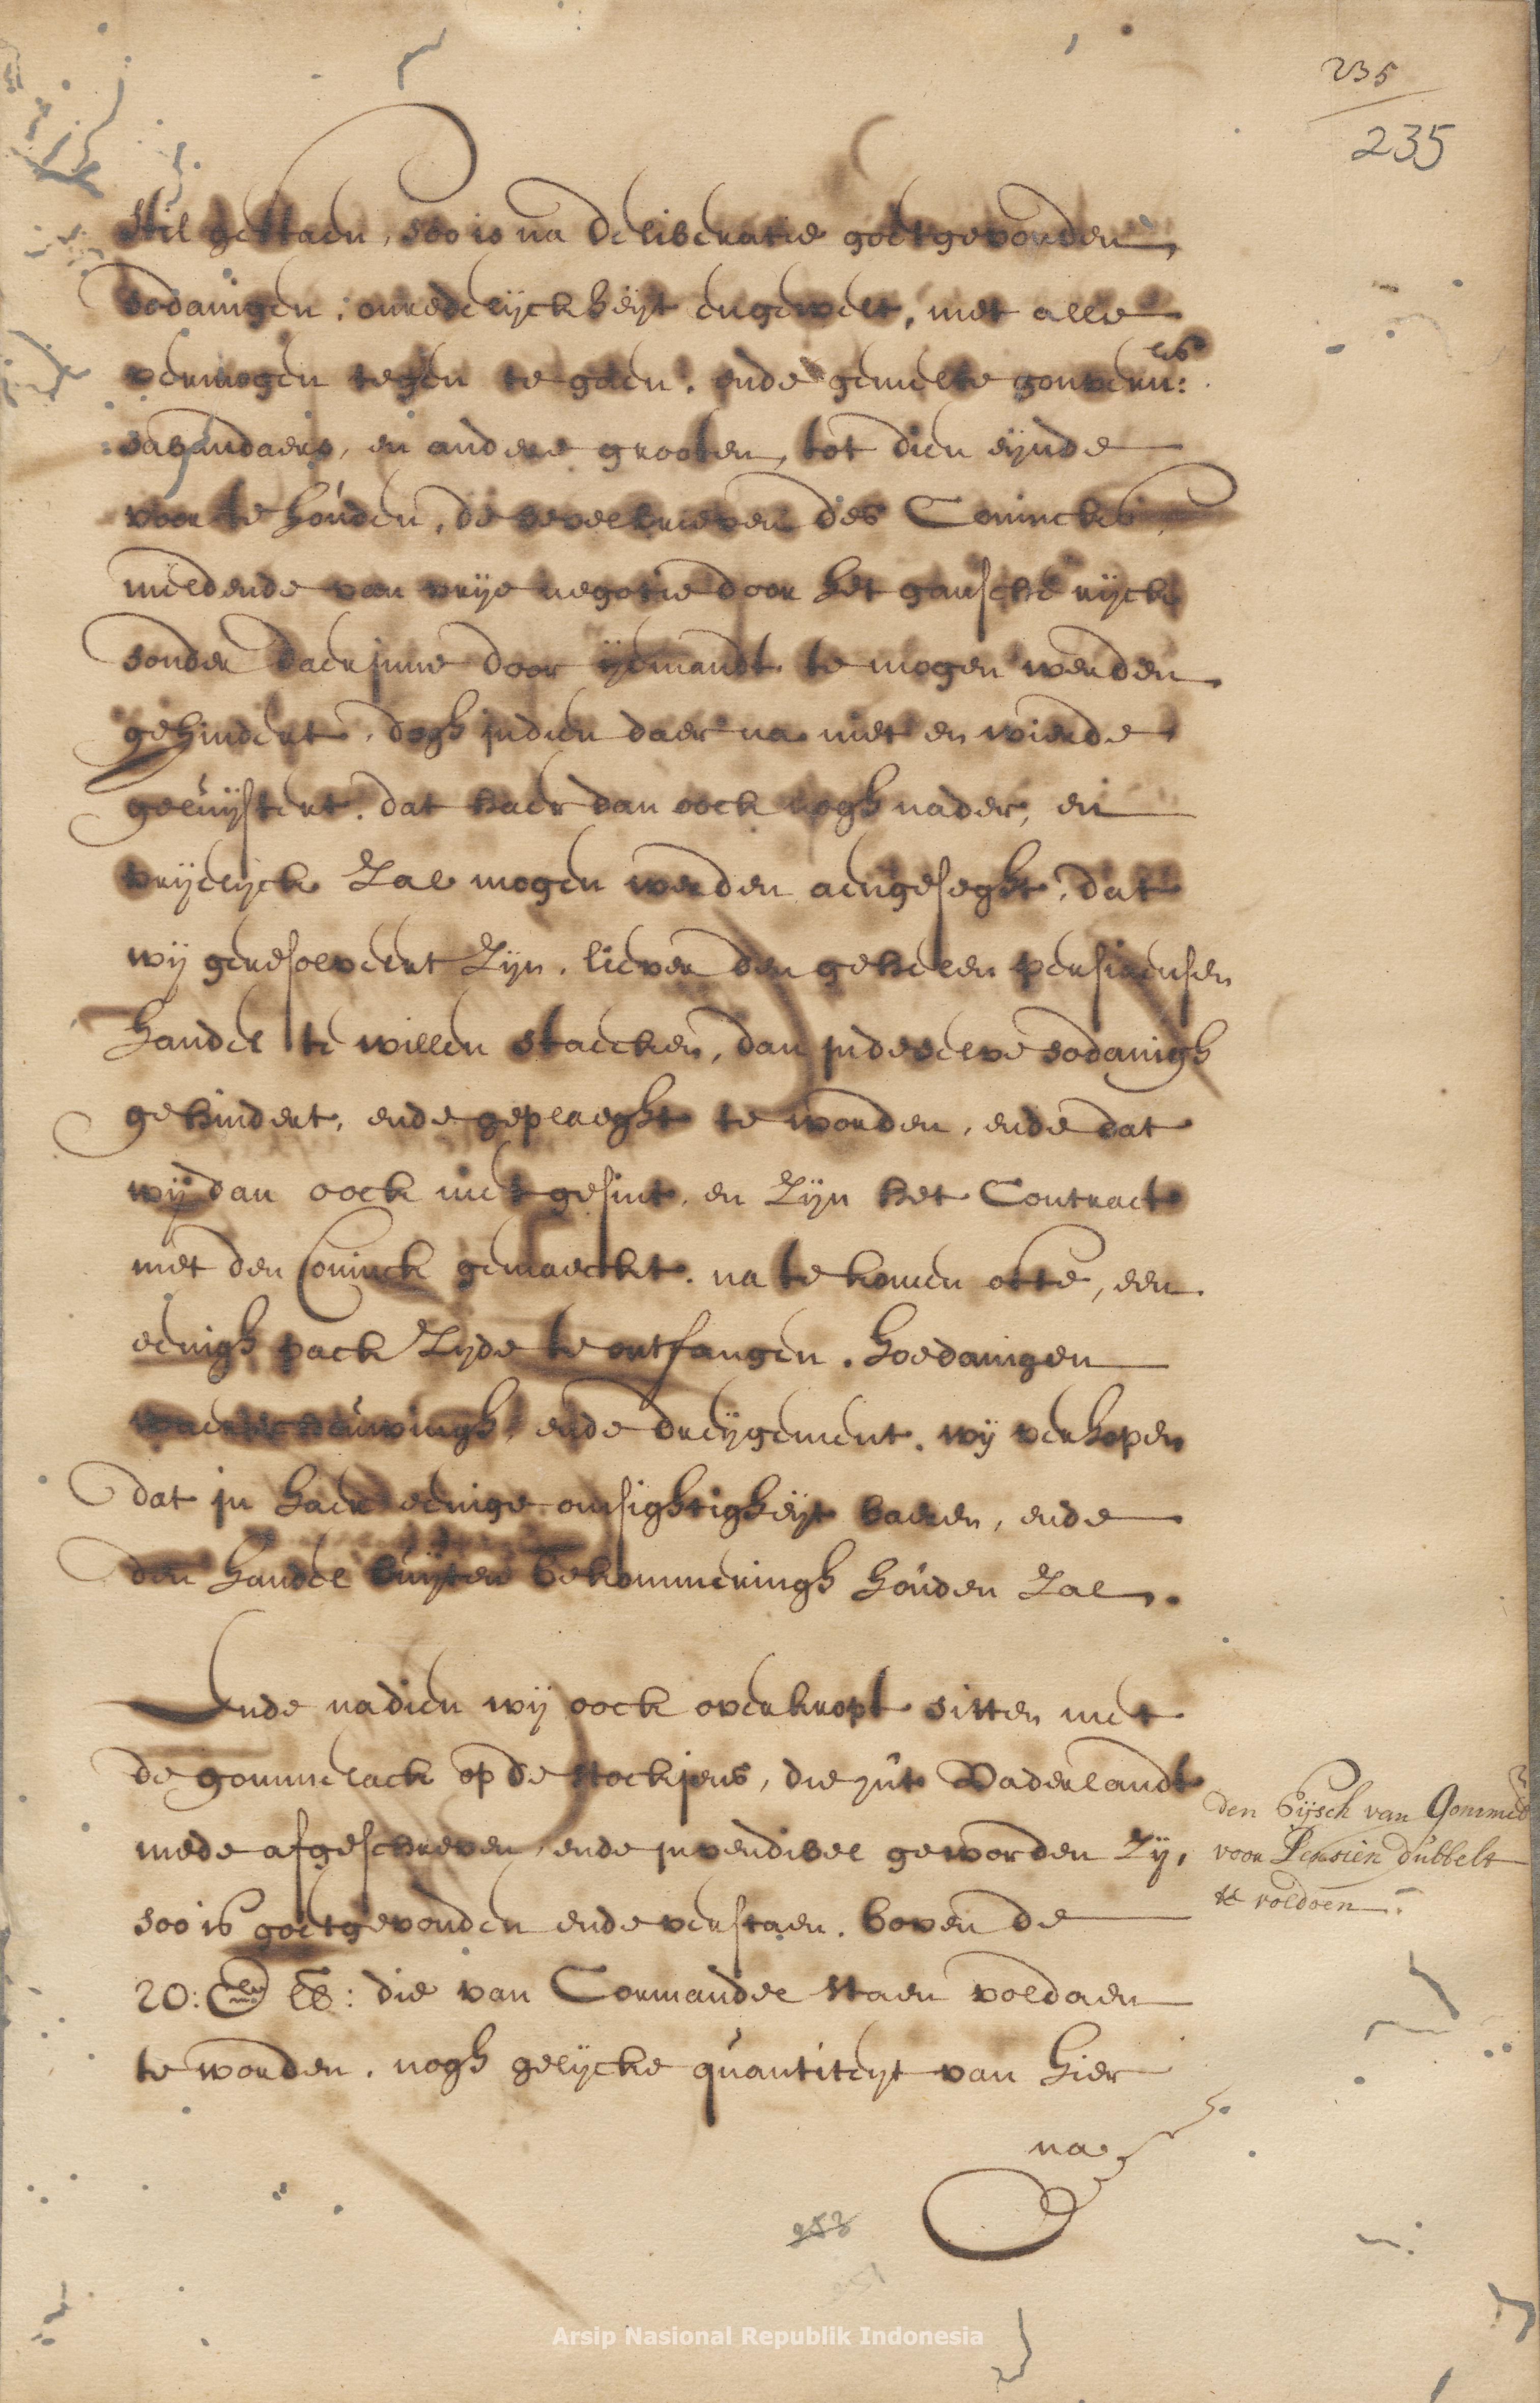 235
235
stil gestaen, soo is na deliberatie goetgevonden,
sodanigen onredelijckheijt en gewelt, met alle
vermogen tegen te gaen, ende gemelte gouvern:rs
sabandaers, en andere grooten, tot dien eijnde
voor te houden, de bevelbrieven des Conincks,
meldende van vrije negotie door het gansche rijck
sonder daer inne door ijemandt te mogen werden
gehindert, dogh indien daer na niet en wierde
geluijstert, dat haer dan oock nogh nader, en
vrijelijck zal mogen werden aengeseght, dat
wij geresolveert zijn, liever den geheelen persiaensen
handel te willen staecken, dan in deselve sodanigh
gehindert, ende geplaeght te worden, ende dat
wij dan oock niet gesint, en zijn het Contract
met den Coninck gemaeckt, na te komen ofte, een
eenigh pack zijde te ontfangen. hoedanigen
waerschouwingh, ende dreijgement, wij verhopen
dat in haer eenige omsightigheijt baeren, ende
den handel buijten bekommeringh houden zal.
Ende nadien wij oock overkropt sitten met
de gommelack op de stockjens, die uijt Vaderlandt
mede afgeschreven, ende invendibel geworden zij,
soo is goetgevonden ende verstaen, boven de
20: lb: die van Cormandel staen voldaen
te worden, nogh gelijcke quantiteijt van hier
den Eijsch van Gomme
voor Persien dubbelt
te voldoen
na
253
Arsip Nasional Republik Indonesia